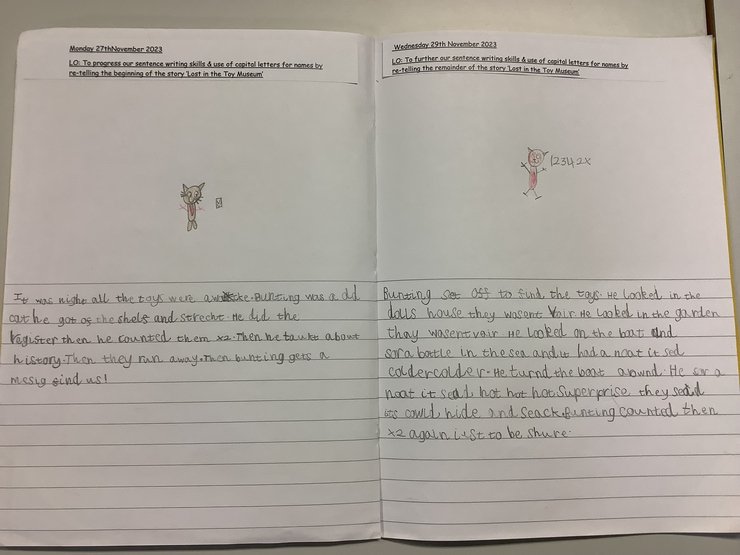 Monday 27thNovember 2023
LO: To progress our sentence writing skills & use of capital letters for names by
re-telling the beginning of the story 'Lost in the Toy Museum'
It was night all the toys were awake. Bunting was a old
cat he got of the shelf and strecht. He did the
register then he counted them x2. Then he taukt about
history. Then they run away. Then bunting gets a
mesig find us!
Wednesday 29th November 2023
LO: To further our sentence writing skills & use of capital letters for names by
re-telling the remainder of the story 'Lost in the Toy Museum'
1234 2x
Bunting set off to find the toys. He looked in the
dolls house they wasent vair. He looked in the garden
thay wasent vair. He looked on the boat and
sor a bottle in the sea and it had a noat it sed
colder colder. He turnd the boat around. He sor a
noat it sead hot hot hot Superprise they seaid
its could hide and seack. Bunting counted then
x2 again just to be shure.